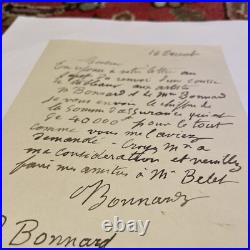 16 Decembre
Monsieur
En réponse à votre lettre au
sujet du renvoi d'un
tableaux aux artistes
Mr Bonnard & Mme Bonnard
Je vous envoie le chiffre de
la somme d'assurance qui est
de 40000 pour le tout
comme vous me l'aviez
demandé - Croyez Mr à
ma considération et veuillez
faire mes amitiés à Mr Belet
Bonnard
Bonnard